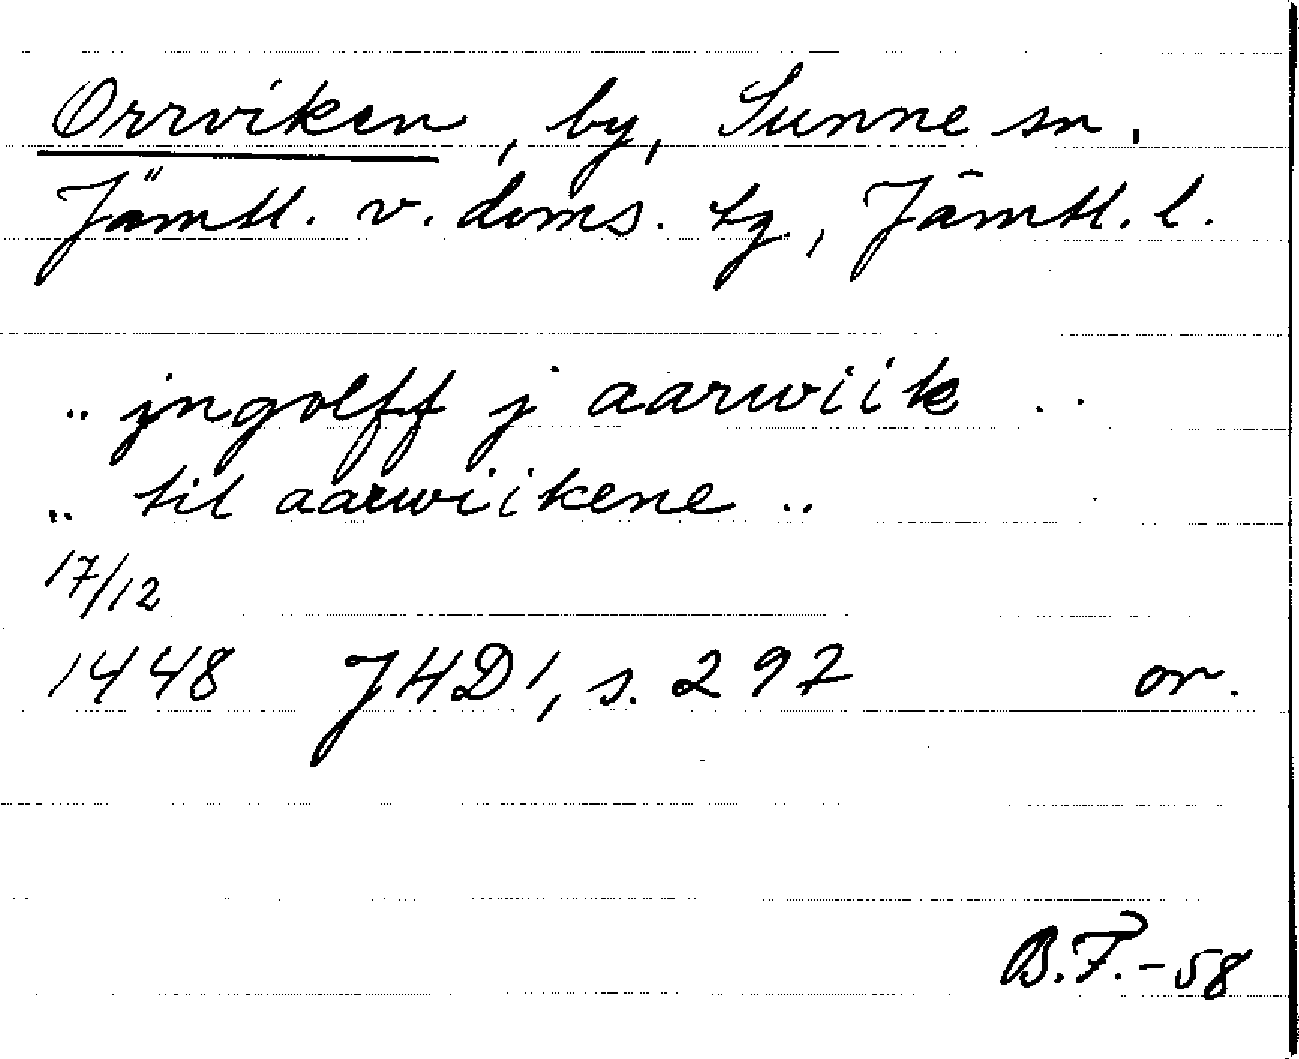 Orrviken, by, Sunne sn.
Jämtl. v. doms. tg., Jämtl. l.
.. jngolff j aarwiik ..
.. til aarwiikene ..
17/12
1448 JHD 1, s. 297 or.
B.F. - 58